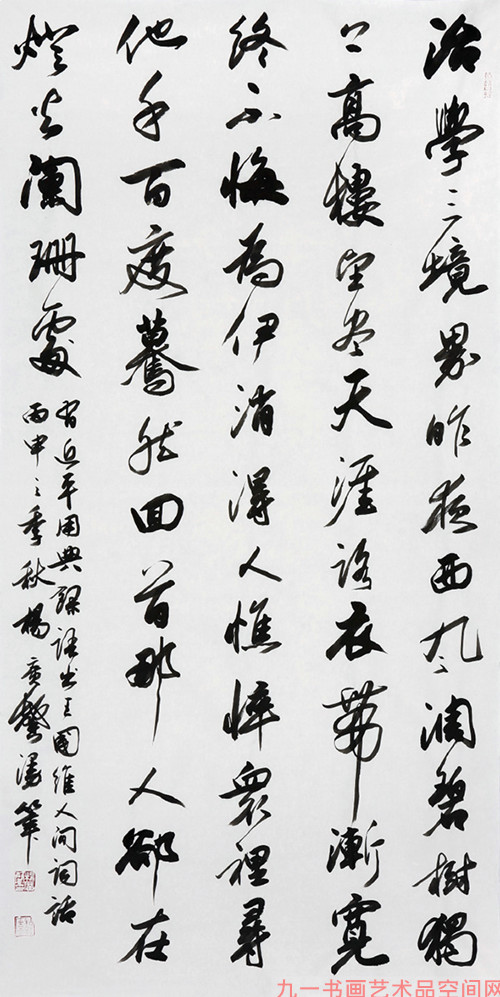 治學三境界昨夜西風凋碧樹獨
上高樓望尽天涯路衣帶漸寬
終不悔為伊消得人憔悴眾裡尋
他千百度驀然回首那人卻在
燈火闌珊處
習近平用典 語出王國維人间词话
丙申之季秋楊廣馨漫筆
九一书画艺术品空间网